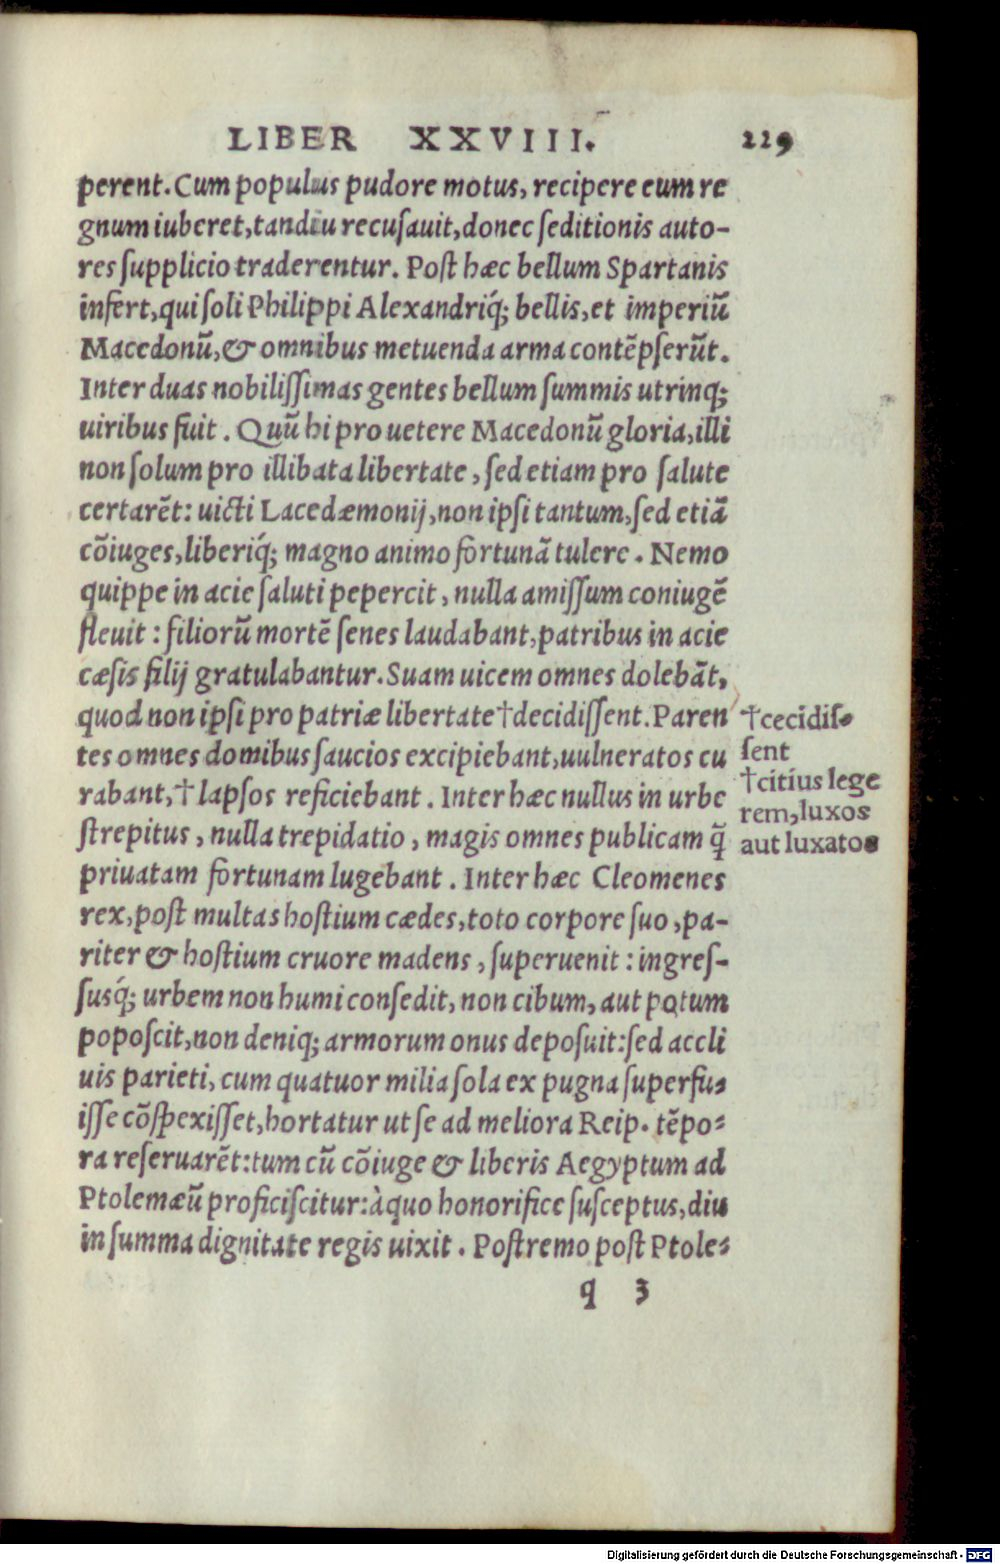 LIBER XXVIII. 229
perent. Cum populus pudore motus, recipere eum re
gnum iuberet, tandiu recusauit, donec seditionis auto-
res supplicio traderentur. Post hæc bellum Spartanis
infert, qui soli Philippi Alexandriq́; bellis, et imperiũ
Macedonũ, & omnibus metuenda arma contẽpserũt.
Inter duas nobilissimas gentes bellum summis utrinq;
uiribus fuit. Quũ hi pro uetere Macedonũ gloria, illi
non solum pro illibata libertate, sed etiam pro salute
certarẽt: uicti Lacedæmonij, non ipsi tantum, sed etiã
cõiuges, liberiq́; magno animo fortunã tulere. Nemo
quippe in acie saluti pepercit, nulla amissum coniugẽ
fleuit: filiorũ mortẽ senes laudabant, patribus in acie
cæsis filij gratulabantur. Suam uicem omnes dolebãt,
quod non ipsi pro patriæ libertate †decidissent. Paren
tes omnes domibus saucios excipiebant, uulneratos cu
rabant, † lapsos reficiebant. Inter hæc nullus in urbe
strepitus, nulla trepidatio, magis omnes publicam q̃
priuatam fortunam lugebant. Inter hæc Cleomenes
rex, post multas hostium cædes, toto corpore suo, pa-
riter & hostium cruore madens, superuenit: ingres-
susq́; urbem non humi consedit, non cibum, aut potum
poposcit, non deniq; armorum onus deposuit: sed accli
uis parieti, cum quatuor milia sola ex pugna superfu-
isse cõspexisset, hortatur ut se ad meliora Reip. tẽpo-
ra reseruarẽt: tum cũ cõiuge & liberis Aegyptum ad
Ptolemæũ proficiscitur: à quo honorifice susceptus, diu
in summa dignitate regis uixit. Postremo post Ptole-
q 3
†cecidis-
sent
†citius lege
rem, luxos
aut luxatos
Digitalisierung gefördert durch die Deutsche Forschungsgemeinschaft - DFG